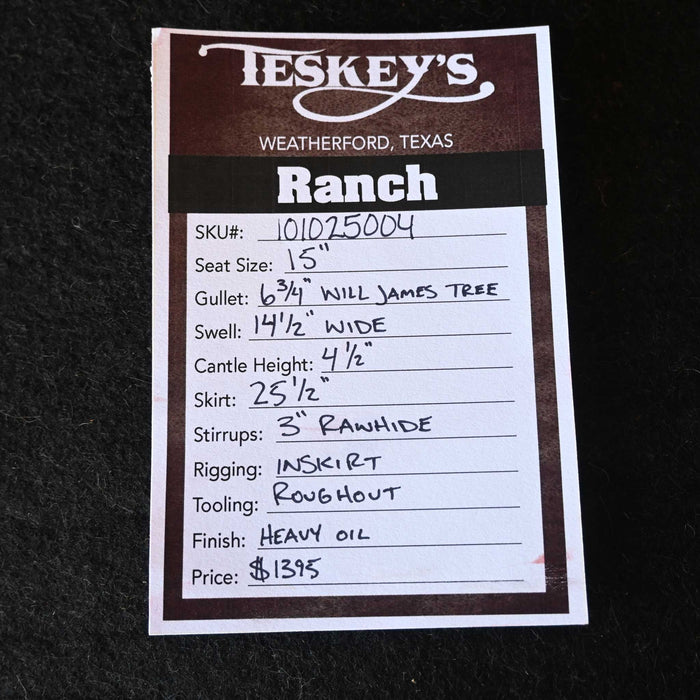 TESKEY'S
WEATHERFORD, TEXAS
Ranch
SKU#: 101025004
Seat Size: 15"
Gullet: 6 3/4" WILL JAMES TREE
Swell: 14 1/2" WIDE
Cantle Height: 4 1/2"
Skirt: 25 1/2"
Stirrups: 3" RAWHIDE
Rigging: INSKIRT
Tooling: ROUGHOUT
Finish: HEAVY OIL
Price: $1395